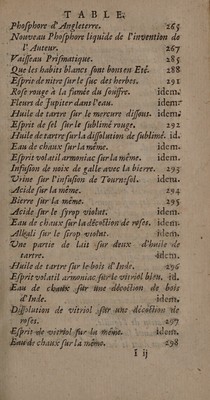 TABLE.
Phosphore d'Angleterre. 265
Nouveau Phosphore liquide de l'invention de
l'Auteur. 267
Vaisseau Prismatique. 285
Que les habits blancs sont bons en Eté. 288
Esprit de nitre sur le suc des herbes. 291
Rose rouge à la fumée du souffre. idem.
Fleurs de Jupiter dans l'eau. idem.
Huile de tartre sur le mercure dissout. idem.
Esprit de sel sur le sublimé rouge. 292
Huile de tartre sur la dissolution de sublimé. id.
Eau de chaux sur la même. idem.
Esprit volatil armoniac sur la même. idem.
Infusion de noix de galle avec la bierre. 293
Urine sur l'infusion de Tournesol. idem.
Acide sur la même. 294
Bierre sur la même. 295
Acide sur le syrop violat. idem.
Eau de chaux sur la décoction de roses. idem.
Alkali sur le sirop violat. idem.
Une partie de lait sur deux d'huile de
tartre. idem.
Huile de tartre sur le bois d'Inde. 296
Esprit volatil armoniac sur le vitriol bleu. id.
Eau de chaux sur une décoction de bois
d'Inde. idem.
Dissolution de vitriol sur une décoction de
roses. 297
Esprit de vitriol sur la même. idem.
Eau de chaux sur la même. 298
i ij